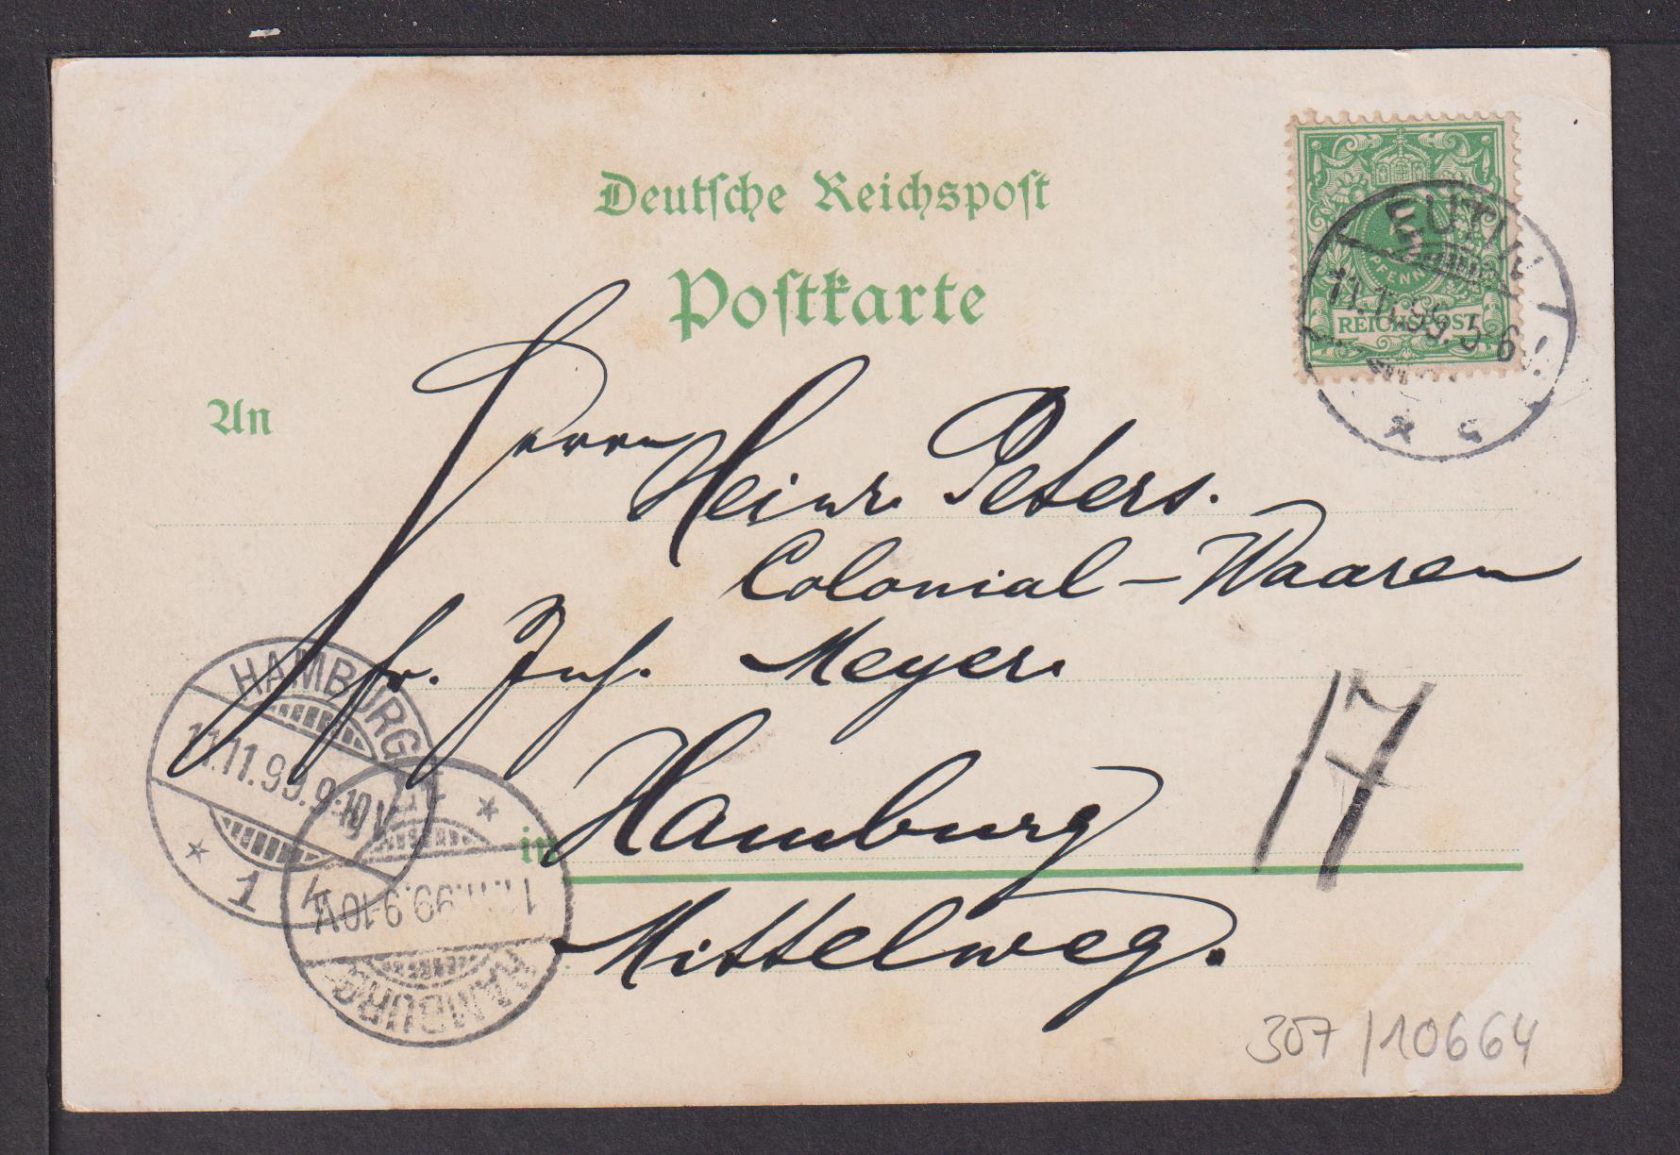 Deutsche Reichspost
Postkarte
REICHSPOST
EUTIN
11.11.99. 5-6
An
Herrn Heinr. Peters.
Colonial-Waaren
fr. Joh. Meyer.
in Hamburg
Mittelweg.
17
HAMBURG
11.11.99.9-10V
* 1 *
HAMBURG
11.11.99.9-10V
307/10664